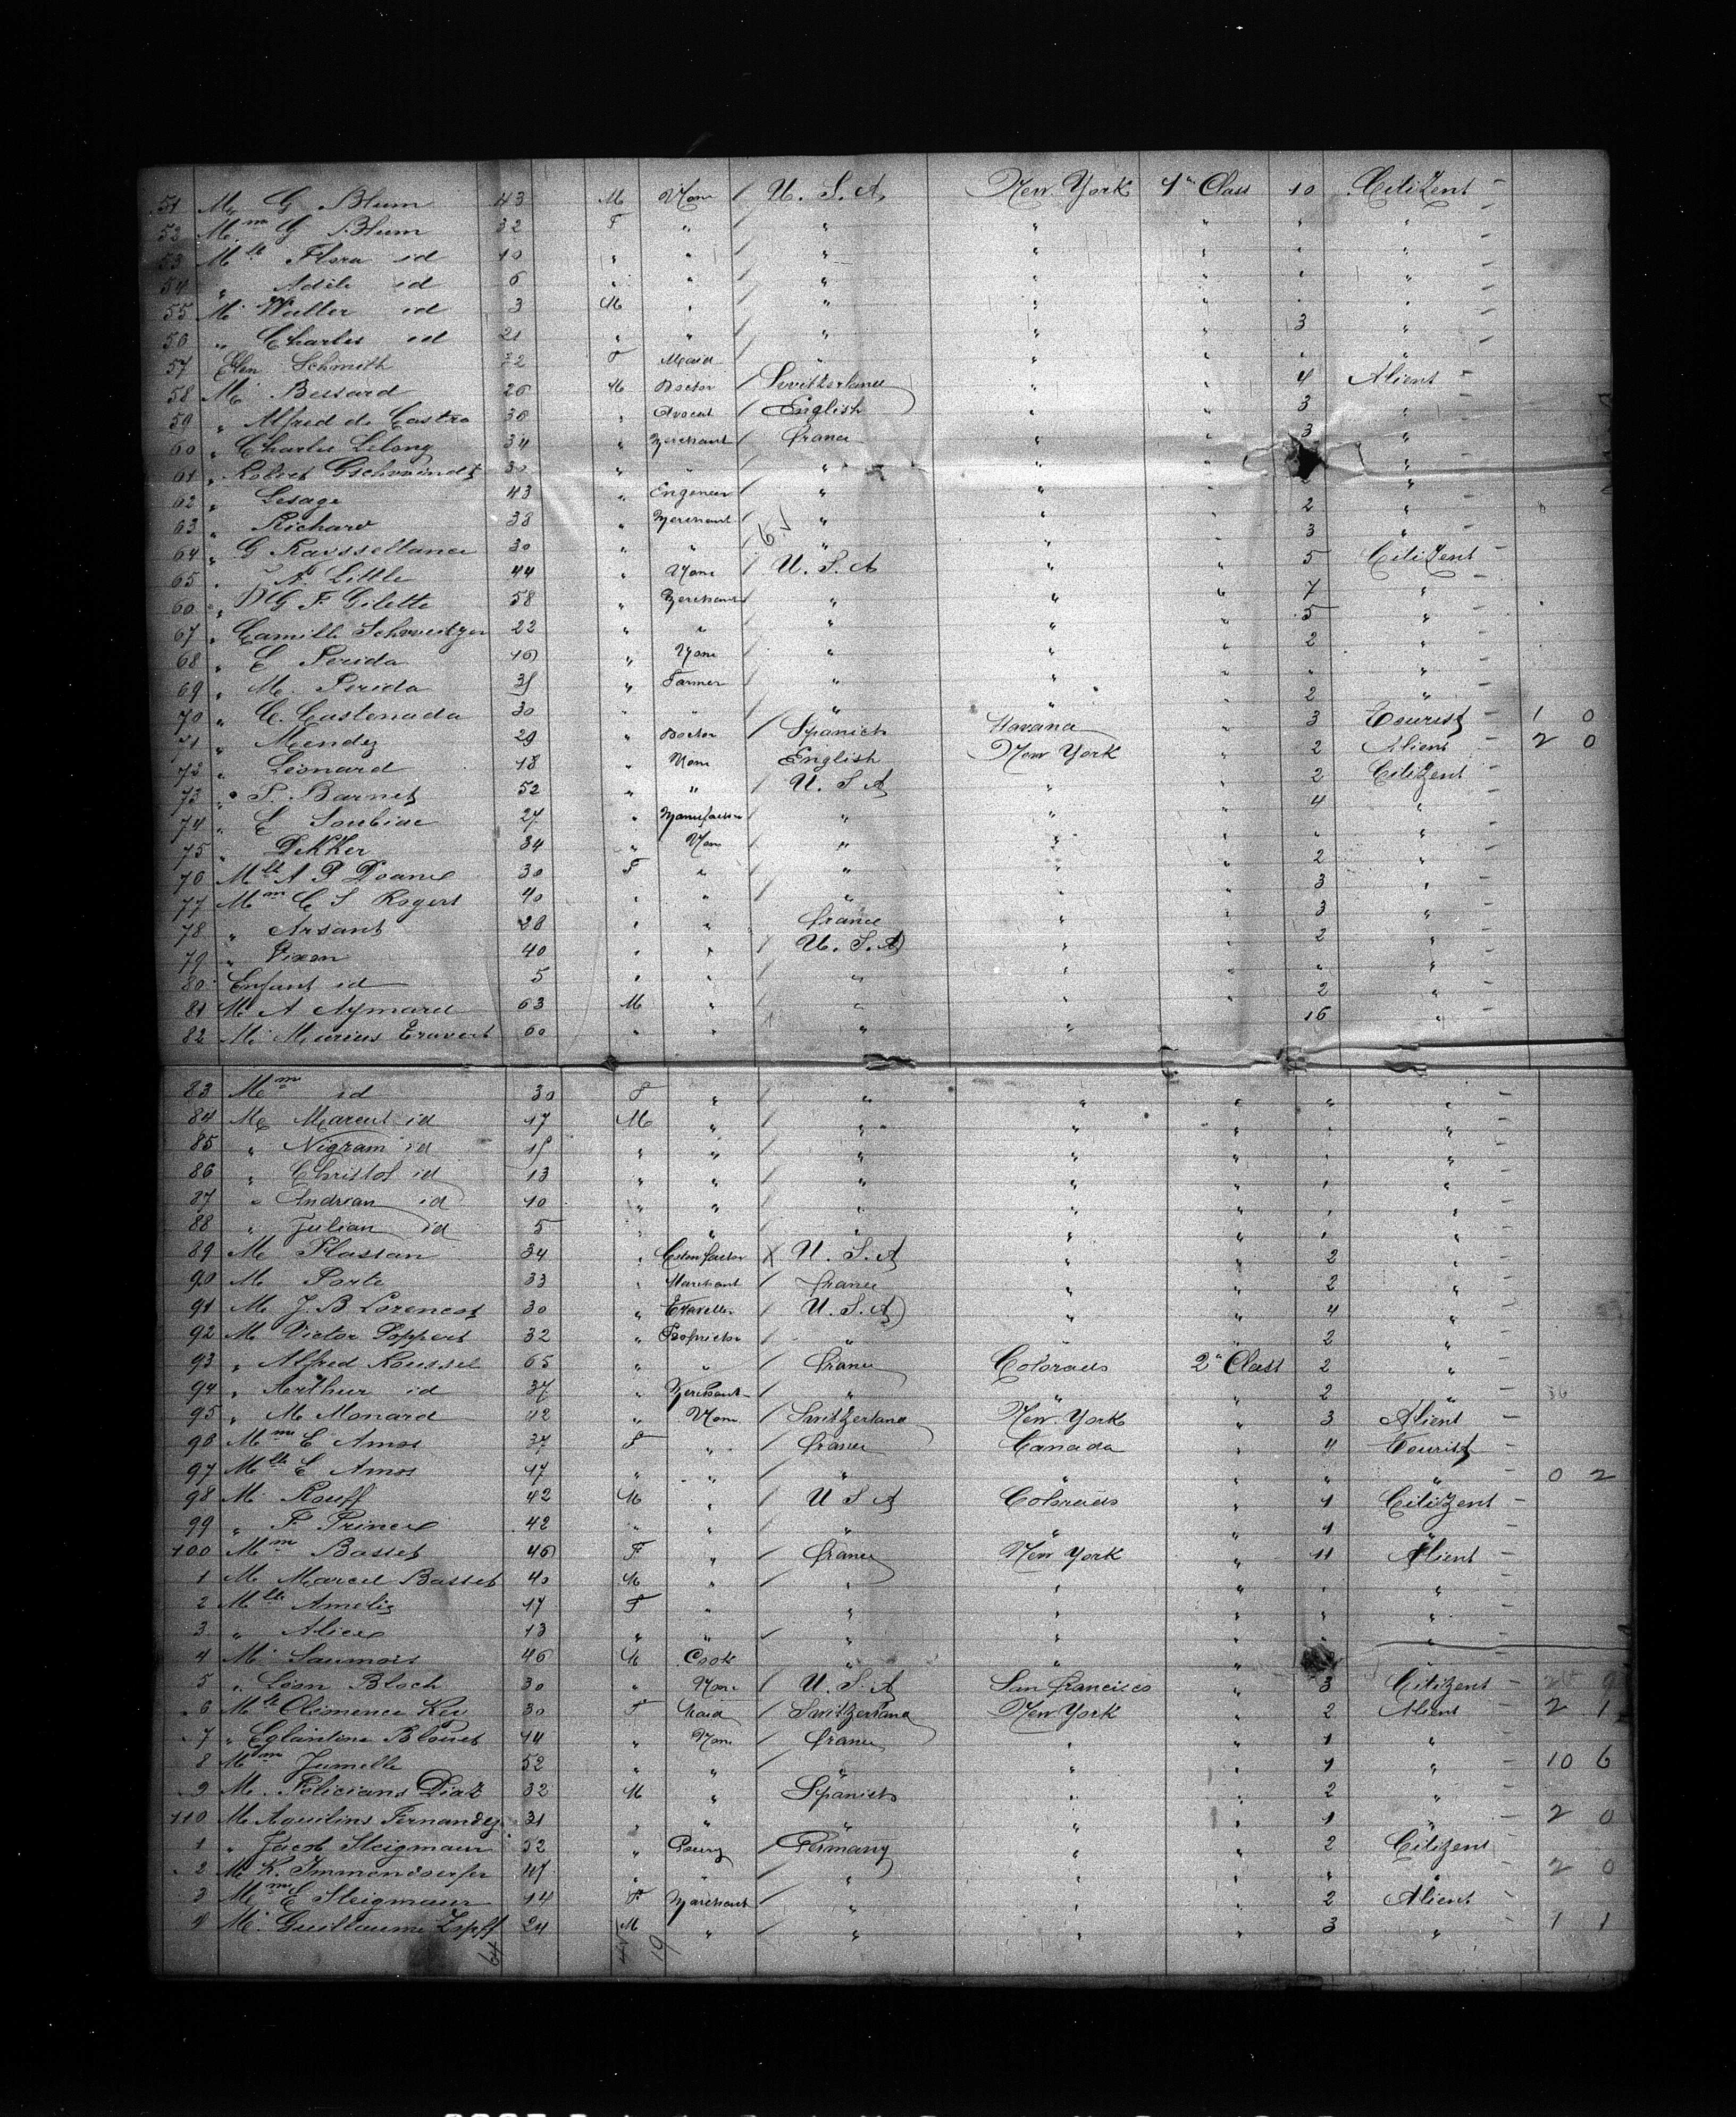 51 Mr G Blum 43 M None / U. S. A New York 1st Class 10 Citizent -
52 Mm G Blum 32 F " / " " " " " -
53 Mlle Flora id 10 " " / " " " " " -
54 " Adèle id 6 " " / " " " " " -
55 M Walter id 3 M " / " " " " " -
56 " Charles id 21 " " / " " " 3 " -
57 Elen Schmith 22 F Maid / " " " " " -
58 M Bessard 26 M Doctor / Switterland " " 4 Alient -
59 " Alfred de Castro 36 " Avocat / English " " 3 " -
60 " Charles Lelong 34 " Merchant / france " " 3 "
61 " Robert Gschwindt 30 " " " " " "
62 " Lesage 43 " Engeneer / " " " 2 "
63 " Richard 38 " Merchant / " " " 2 "
64 " G 30 " " " " " 3 " -
65 " Little 44 " None / U. S. A " " 5 Citizent -
66 " G F Gilette 58 " Merchant / " " " 7 "
67 " Camille Schweitzer 22 " " / " " " 5 "
68 " E Perida 16 " None / " " " 2 " -
69 " M. Perida 35 " Farmer / " " " " " -
70 " C. Castenada 30 " " " " " 2 " -
71 " Mendez 29 " Doctor / Spanich Havana " 3 Tourist - 1 0
72 " Léonard 18 " None English New York " 2 Alient - 2 0
73 " S. Barnet 52 " " / U. S A " " 2 Citizent -
74 " E 27 " / " " " 4 " -
75 " Dekker 34 " None / " " " " " -
76 Mlle A P Doane 30 F " / " " " 2 " -
77 Mm C S Rogers 40 " " / " " " 3 " -
78 " Arsant 28 " " france " " 3 " -
79 " Dixon 40 " " / U. S. A " " 2 " -
80 Enfant id 5 " " " " " " " -
81 M A Aymard 63 M " " " " 2 " -
82 M Marius 60 " " " " " 16 " -
83 Mm id 30 F " / " " " " " -
84 M Marcus id 17 M " / " " " " " -
85 " Nigram id 15 " " / " " " " " -
86 " Christof id 13 " " / " " " " " -
87 " Andrean id 10 " " / " " " " " -
88 " Julian id 5 " " / " " " " " -
89 M Plassan 34 " X U. S. A " " 2 " -
90 M Porte 33 " Marchant / france " " 2 " -
91 M J. B Lorenest 30 " Traveller / U. S. A " " 4 " -
92 M Victor Loppert 32 " Proprietor / " " " 2 " -
93 " Alfred Roussel 65 " " / france Colorado 2d Class 2 " -
94 " Arthur id 37 " Merchant / " " " 2 " -
95 " M Monard 42 " None / Switzerland New York " 3 Alient -
96 Mm E Amos 37 F " / france Canada " 11 Tourist -
97 Mlle E Amos 17 " " " " " " " 0 2
98 M Rouff 42 M " / U S A Colorado " 1 Citizent -
99 " F Prince 42 " " / " " " 1 "
100 Mm Basset 46 F " / france New York " 11 Alient -
1 M Marcel Basset 40 M " / " " " " " -
2 Mlle Amelie 17 F " " " " " " -
3 " Alice 13 " " / " " " " "
4 M Saumois 46 M Cook " " "
5 " Léon Bloch 30 " None / U. S. A San francisco " 3 Citizent -
6 Mlle Clémence Key 30 F Maid / Switzerland New York " 2 Alient - 2 1
7 " Eglantine Blouet 44 " None / france " " 1 " -
8 Mm Jumelle 52 " " " " " 1 " - 10 6
9 M. Féliciano Diaz 32 M " Spanich " " 2 "
110 M Aquilino Fernandez 31 " " " " " 1 " - 2 0
1 " Jacob Steigmann 52 " / Germany " " 2 Citizent -
2 M K. Immendoerfer 47 " " " " " " " 2 0
3 Mm E Steigmann 14 F Marchant / " " " 2 Alient -
4 M. Guillaume Zipff 24 M " / " " " 3 " - 1 1
64 19